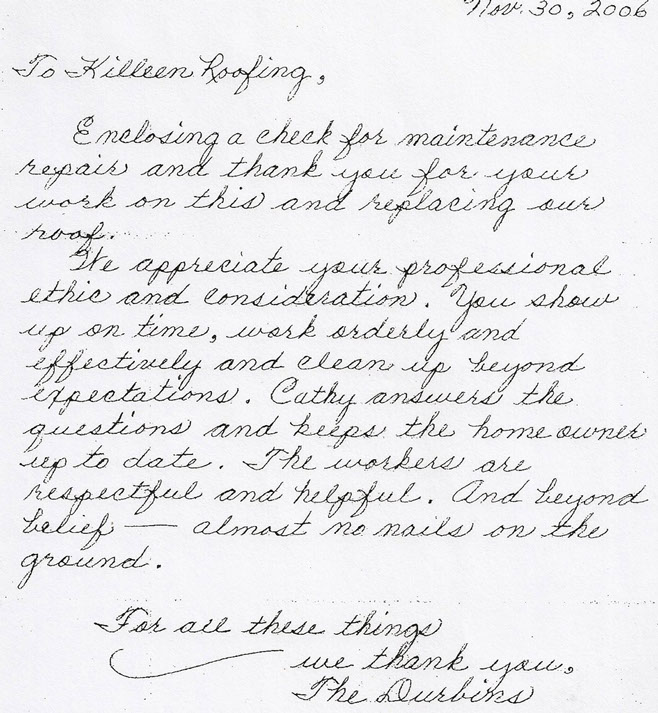 Nov. 30, 2006
To Killeen Roofing,
Enclosing a check for maintenance
repair and thank you for your
work on this and replacing our
roof.
We appreciate your professional
ethic and consideration. You show
up on time, work orderly and
effectively and clean up beyond
expectations. Cathy answers the
questions and keeps the home owner
up to date. The workers are
respectful and helpful. And beyond
belief — almost no nails on the
ground.
For all these things
we thank you,
The Durbins